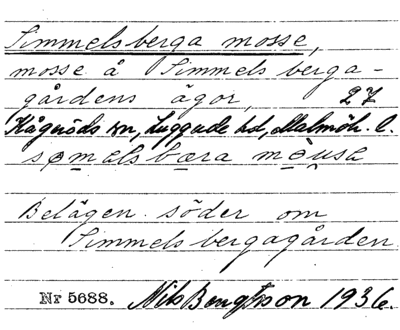 Simmelsberga mosse,
mosse å Simmelsberga-
gårdens ägor, 27
Kågeröds sn, Luggude hd, Malmöh. l.
semalsbæra mòusa
Belägen söder om
Simmelsbergagården.
Nr 5688. Nils Bengtsson 1936.